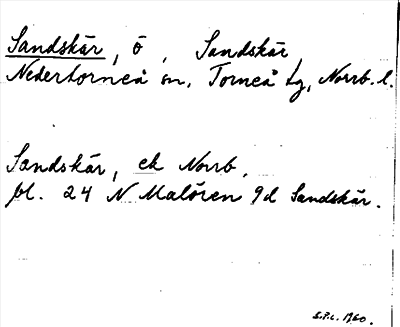 Sandskär, ö, Sandskär,
Nedertorneå sn, Torneå tg, Norrb. l.
Sandskär, ek Norrb.
bl. 24 N Malören 9d Sandskär.
S.P.L. 1960.